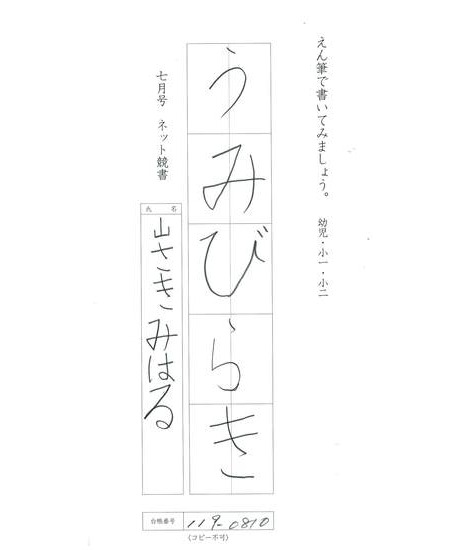 えん筆で書いてみましょう。　幼児・小一・小二
うみびらき
七月号　ネット競書
氏名
山さきみはる
台帳番号 119-0810
(コピー不可)